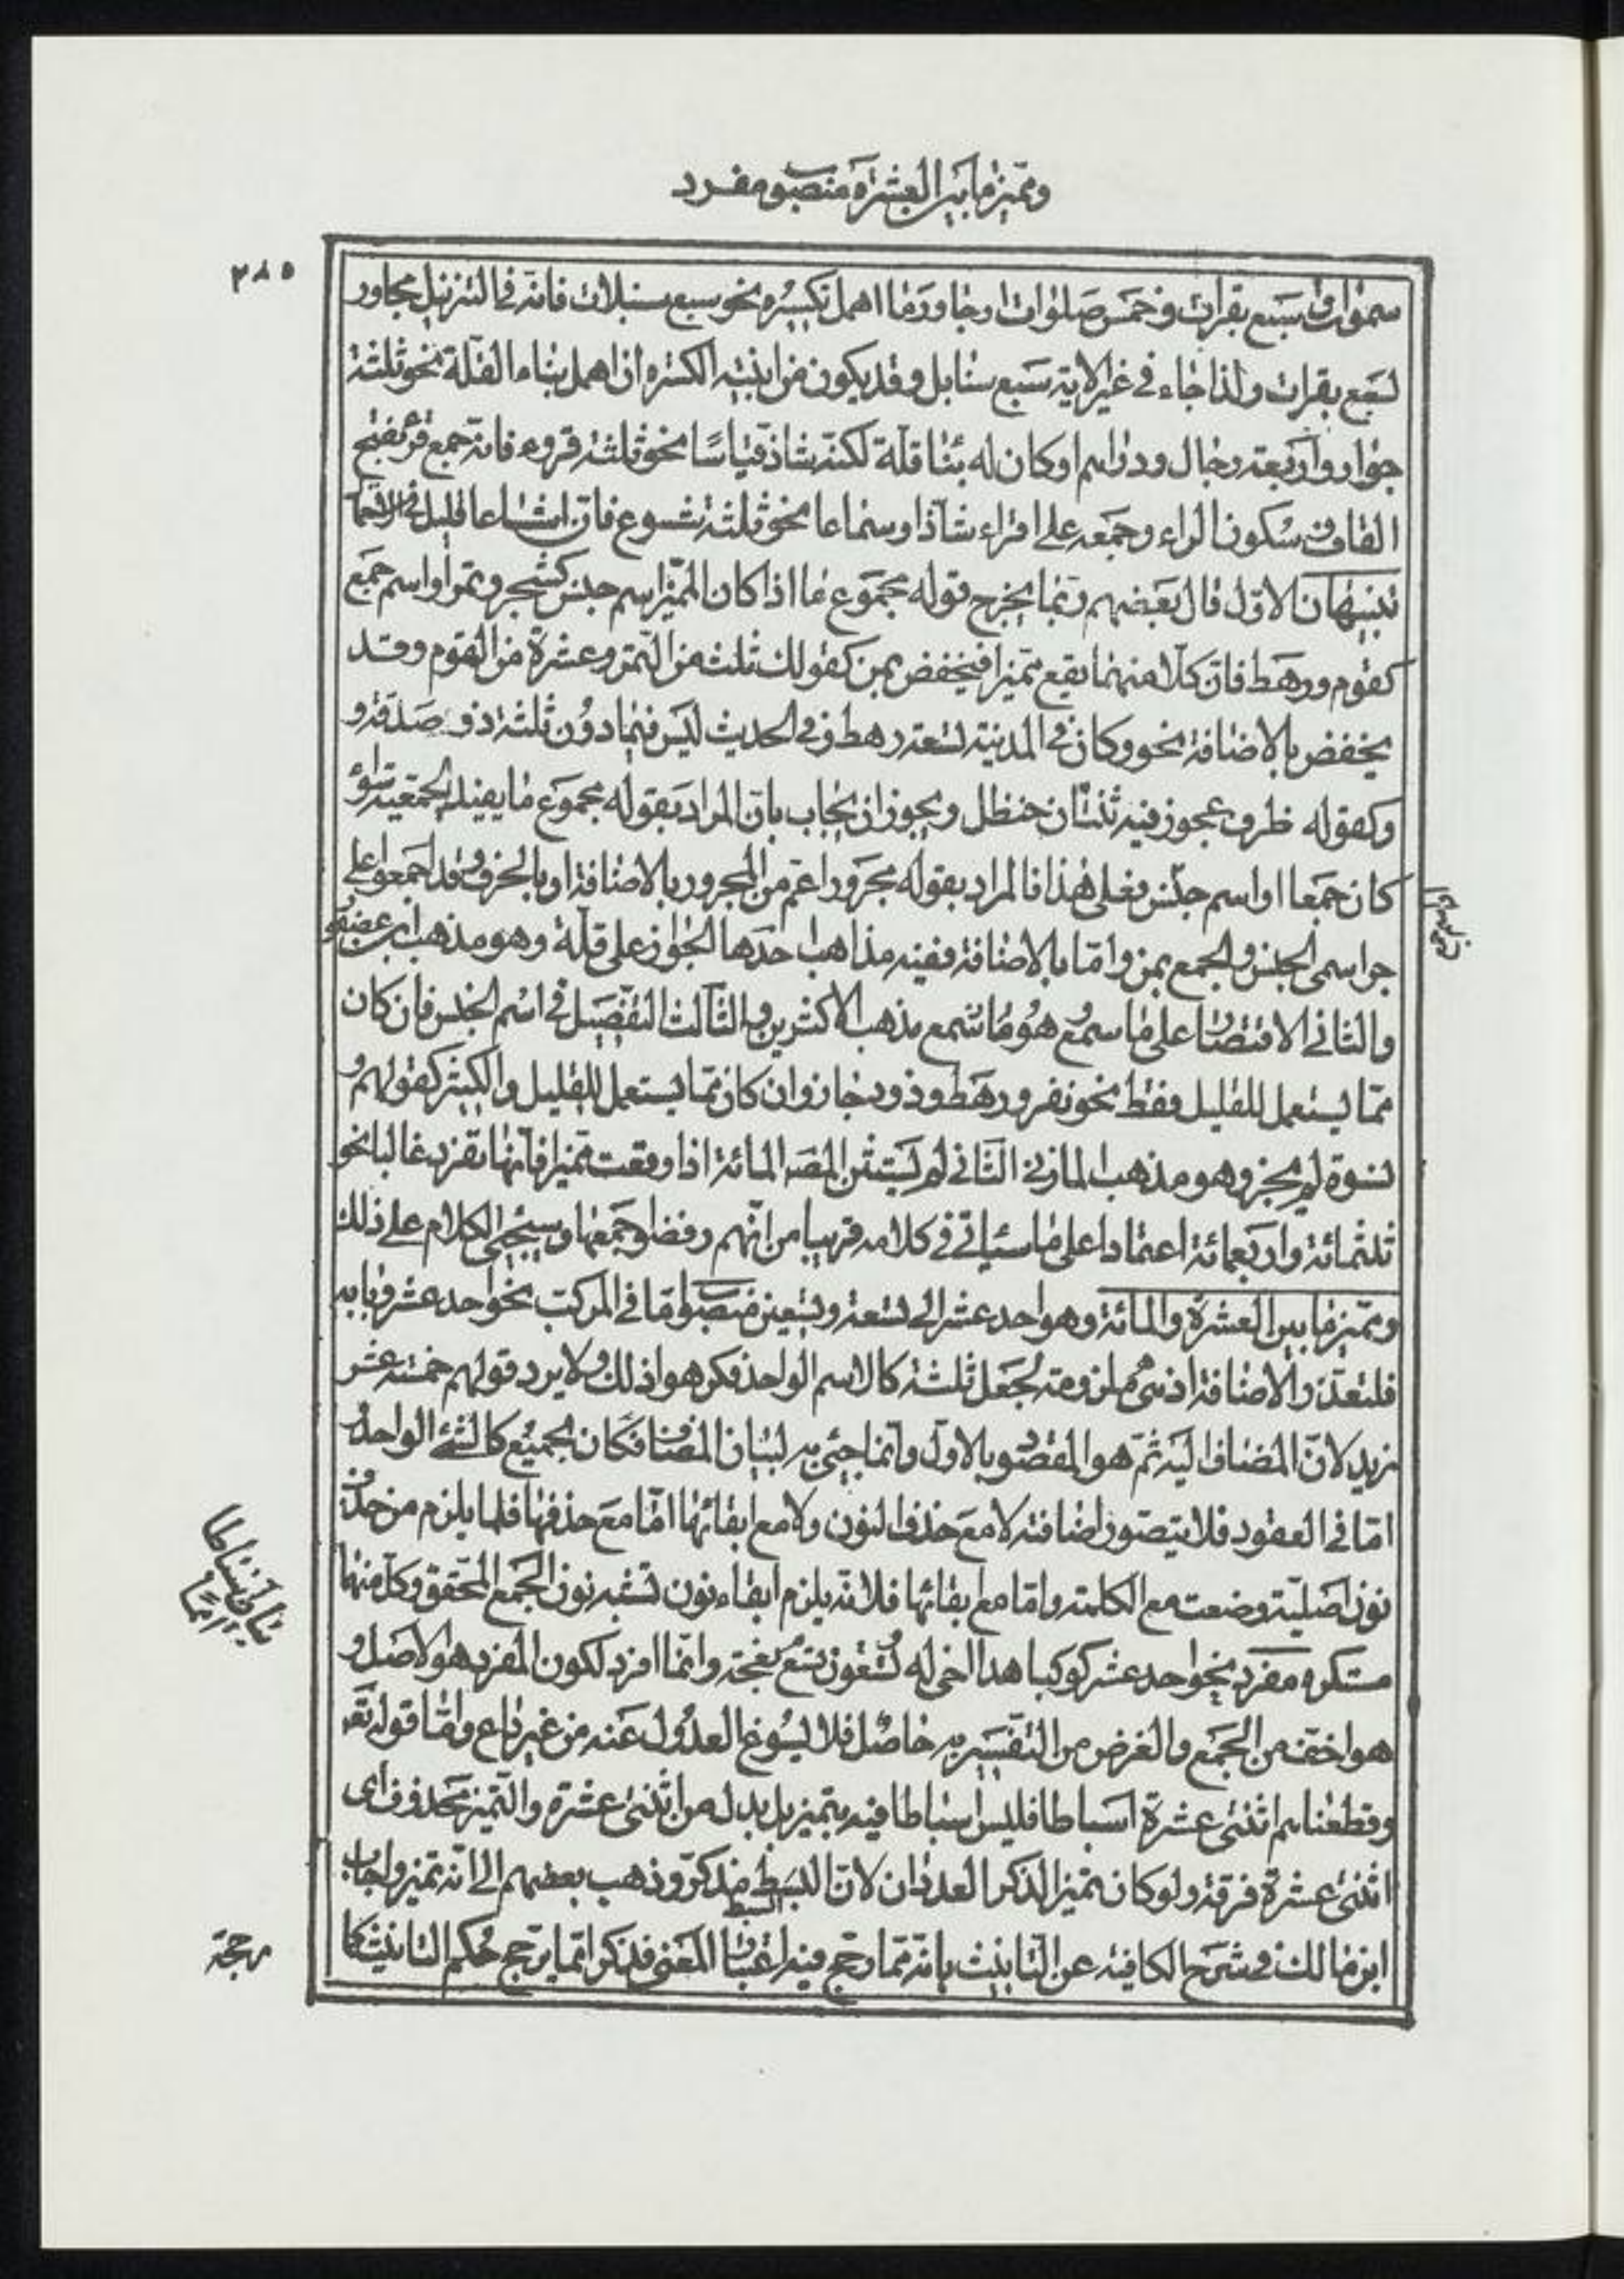 ومميز ما بين العشرة منصوب مفرد
٢٨٥
سموات وسبع بقرات وخمس صلوات او جاور ما اهمل تكسيره نحو سبع سنبلات فانه في التنزيل مجاور
لسبع بقرات ولذا جاء في غير الاية سبع سنابل وقد يكون من ابنية الكثرة ان اهمل بناء القلة نحو ثلثة
جوار واربعة رجال ودراهم او كان له بنا قلة لكنه شاذ قياسًا نحو ثلثة قروء فانه جمع قرء بفتح
القاف وسكون الراء وجمعه على اقراء شاذ او سماعا نحو ثلثة شسوع فان اشساعا قليل في الاستعمال
تنبيهان الاول قال بعضهم ربما يخرج قوله مجموع ما اذا كان المميز اسم جنس كشجر وتمر او اسم جمع
كقوم ورهط فان كلا منهما يقع مميزا فيخفض بمن كقولك ثلث من التمر وعشرة من القوم وقد
يخفض بالاضافة نحو وكان في المدينة تسعة رهط وفي الحديث ليس فيما دون ثلثة ذود صدقة و
وكقوله ظرف عجوز فيه ثنتان حنظل ويجوز ان يجاب بان المراد بقوله مجموع ما يفيد الجمعية سواء
كان جمعا او اسم جنس فعلى هذا فالمراد بقوله مجرور اعم من المجرور بالاضافة او بالحرف وقد اجمعوا على
جر اسمى الجنس والجمع بمن واما بالاضافة ففيه مذاهب احدها الجواز على قلة وهو مذهب ابن عصفور
والثاني الاقتصار على ما سمع وهو ما نسمع مذهب الاكثرين والثالث التفصيل في اسم الجنس فان كان
مما يستعمل للقليل فقط نحو نفر ورهط وذود جاز وان كان مما يستعمل للقليل والكثير كقولهم و
نسوة لم يجز وهو مذهب المازني الثاني لم يستثن المصـ المائة اذا وقعت مميزا فانها تفرد غالبا نحو
ثلثمائة واربعمائة اعتمادا على ما سيأتي في كلامه قريبا من انهم رفضوا جمعها وسيجئ الكلام على ذلك
ومميز ما بين العشرة والمائة وهو احد عشر الى تسعة وتسعين منصوب اما في المركب نحو احد عشر وبابه
فلتعذر الاضافة اذ هي لجعل ثلثة كالاسم الواحد فكرهوا ذلك ولا يرد قولهم خمسة عشر
زيد لان المضاف اليه ثم هو المقصود بالاول وانما جئ به لبيان المضاف فكان الجميع كالشئ الواحد و
اما في العقود فلا يتصور اضافته لا مع حذف النون ولا مع ابقائها اما مع حذفها فلما يلزم من حذف
نون اصلية وضعت مع الكلمة واما مع ابقائها فلانه يلزم ابقاء نون تشبه نون الجمع المحقق وكل منهما
مستكره مفرد نحو احد عشر كوكبا هذا اخى له تسعون تسع نعجة وانما افرد لكون المفرد هو الاصل و
هو اخف من الجمع والغرض من التفسير به حاصل فلا يسوغ العدول عنه من غير داع واما قوله تعـ
وقطعناهم اثنتى عشرة اسباطا فليس اسباطا فيه بتمييز بل بدل من اثنتى عشرة والتمييز محذوف اى
اثنتى عشرة فرقة ولو كان تمييز الذكر العددان لان السبط مذكر وذهب بعضهم الى انه تمييز واجاب
السبط
ابن مالك في شرح الكافية عن التأنيث بانه مما رجح فيه اعتبار المعنى فذكر امما يرجح حكم التانيث كما
رجحة